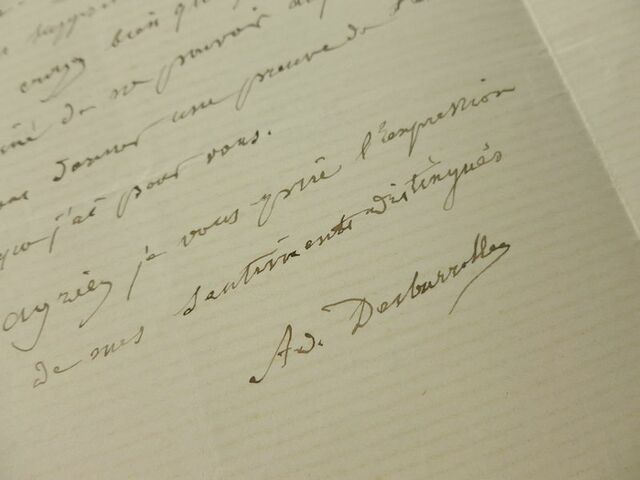 croyez bien que
de ne pouvoir
donner une preuve de
que j'ai pour vous.
agréez je vous prie l'expression
de mes sentiments distingués
Ad. Desbarrolles